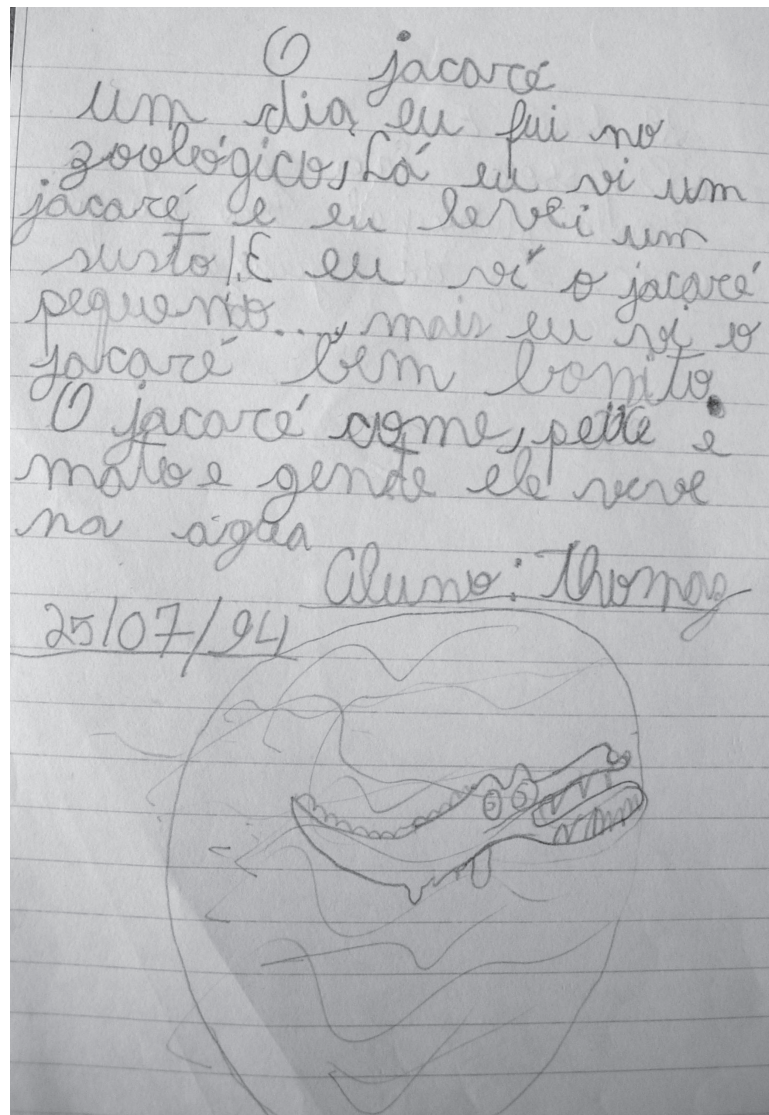 O jacaré
um dia eu fui no
zoológico, Lá eu vi um
jacaré e eu levei um
susto! E eu vi o jacaré
pequeno..., mais eu vi o
jacaré bem bonito.
O jacaré come, peixe e
mato e gende ele vive
na água
Aluno: Thomaz
25/07/94